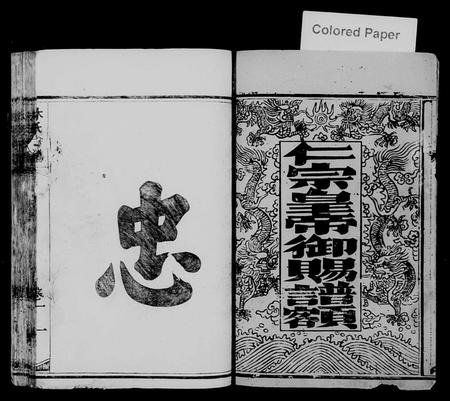 Colored Paper
仁宗皇帝御賜譜額
忠
林氏
卷一